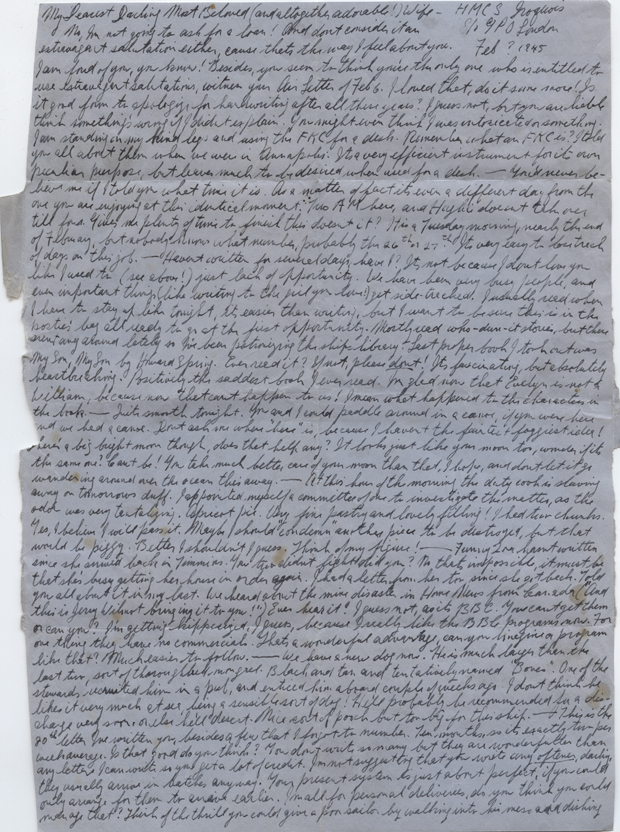 My Dearest Darling Most Beloved (and altogether adorable!) Wife - H.M.C.S. Iroquois
No, I'm not going to ask for a loan! And don't consider it an C/o G P O London
extravagant salutation either, cause that's the way I feel about you. Feb ? 1945
I am fond of you, you know! Besides, you seem to think you're the only one who is entitled to
use extravagant salutations, witness your Air Letter of Feb 6. I loved that, do it some more! Is
it good form to apologize for handwriting after all these years? I guess not, but you are liable
think something's wrong if I didn't explain. You might even think I was intoxicated or something
I am standing on my hind legs and using the FKC for a desk. Remember what an FKC is? I told
you all about them when we were in Annapolis. It's a very efficient instrument for its own
peculiar purpose, but leaves much to be desired when used for a desk. — You'd never be-
lieve me if I told you what time it is. As a matter of fact it's even a different day from the
one you are enjoying at this identical moment. Two A M here, and Haight doesn't take over
till four. Gives me plenty of time to finish this doesn't it? It is a Tuesday morning, near the end
of February, but nobody knows what number, probably the 26th or 27th. It's very easy to lose track
of days on this job. — Haven't written for several days, have I? It's not because I don't love you
like I used to (see above!) just lack of opportunity. We have been very busy people, and
even important things like writing to the girl you love get side-tracked. I usually read when
I have to stay up late tonight, its easier than writing, but I want to be sure this is in the
postie's bag all ready to go at the first opportunity. Mostly read who-dun-it stories, but there
aren't any around lately so I've been patronizing the ship's library. Last proper book I took out was
My Son, My Son by Howard Spring. Ever read it? If not, please don't! It's fascinating, but absolutely
heartbreaking! Positively the saddest book I ever read. I'm glad now that Evelyn is not a
William, because now that can't happen to us! I mean what happened to the characters in
the book. — Its smooth tonight. You and I could paddle around in a canoe, if you were here
and we had a canoe. Don't ask me where "here" is, because I haven't the faintest foggiest idea!
There's a big bright moon though, does that help any? It looks just like your moon too, wonder if it's
the same one? Can't be! You take much better care of your moon than that, I hope, and don't let it go
wandering around over the ocean this away. — At this hour of the morning the duty cook is slaving
away on tomorrows duff. I appointed myself a committee of one to investigate this matter, as the
odor was very tantalizing. Apricot pie. Very fine pastry and lovely filling! I had two chunks.
Yes, I believe I will pass it. Maybe I should "condemn" another piece to be destroyed, but that
would be piggy. Better I shouldn't I guess. Think of my figure! — Funny Zora hasn't written
since she arrived back in Timmins. You two didn't fight did you? No that's impossible, it must be
that she's busy getting her house in order again. I had a letter from her too since she got back. Told
you all about it in my last. We heard about the mine disaster in Home News from Canada. (And
this is Jerry Wilmot bringing it to you!") Ever hear it? I guess not, as it's B.B.C. You can't get them
or can you? I'm getting Anglicized, I guess, because I really like the B B C programs now. For
one thing they have no commercials. That's a wonderful advantage, can you imagine a program
like that? Much easier to follow. — We have a new dog now. He is much larger than the
last two, sort of thoroughbred mongrel. Black and tan and tentatively named "Bosun". One of the
stewards recruited him in a pub, and enticed him aboard couple of weeks ago. I don't think he
likes it very much at sea, being a sensible sort of dog! He'll probably be recommended for a dis-
charge very soon or else he'll desert. Nice sort of pooch but too big for this ship. — This is the
80th letter I've written you, besides a few that I forgot to number. Ten months, so it's exactly two per
week average. Is that good do you think? You don't write so many but they are wonderfuller than
any letters I can write so you get a lot of credit. I'm not suggesting that you write any oftener, darling,
they usually arrive in batches anyway. Your present system is just about perfect, if you could
only arrange for them to arrive earlier. I'm all for personal deliveries, do you think you could
manage that? Think of the thrill you could give a poor sailor by walking into his mess and dishing